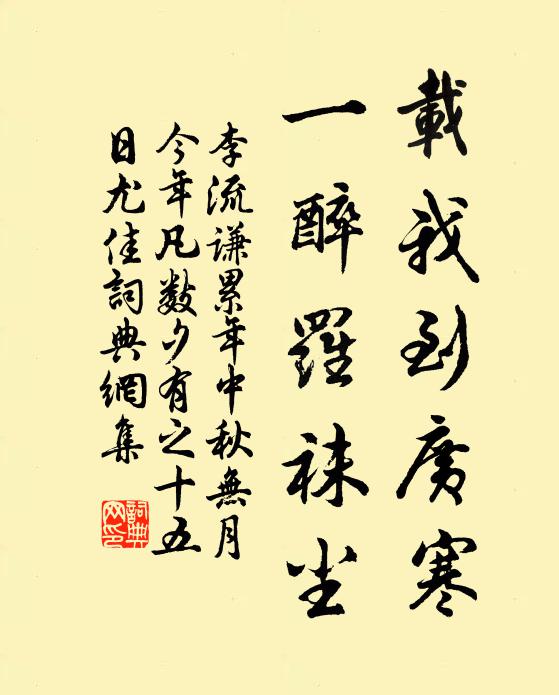 載我到廣寒
一醉羅襪尘
李流謙累年中秋無月
今年凡數夕有之十五
日尤佳詞典網集
詞典
网印